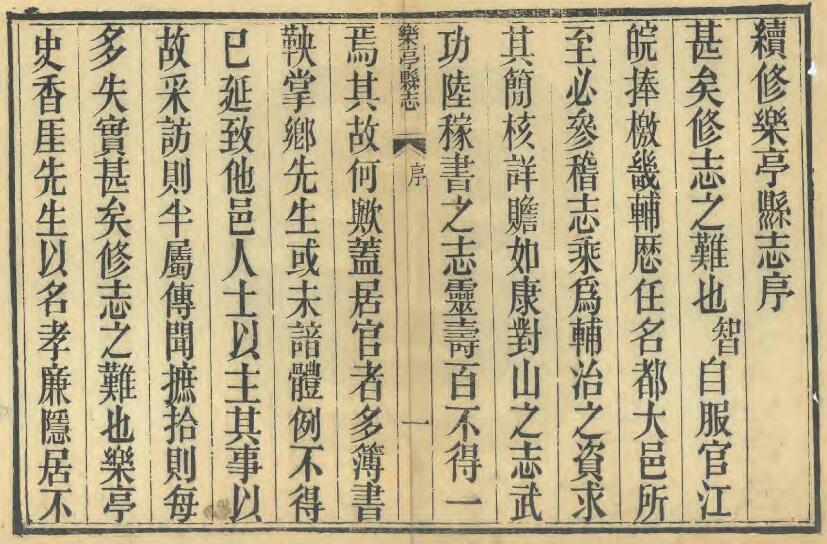 續修樂亭縣志序
甚矣修志之難也智自服官江
皖捧檄畿輔歷任名都大邑所
至必參稽志乘爲輔治之資求
其簡核詳贍如康對山之志武
功陸稼書之志靈壽百不得一
樂亭縣志 序 一
焉其故何歟蓋居官者多簿書
鞅掌鄉先生或未諳體例不得
已延致他邑人士以主其事以
故采訪則半屬傳聞摭拾則每
多失實甚矣修志之難也樂亭
史香厓先生以名孝廉隱居不